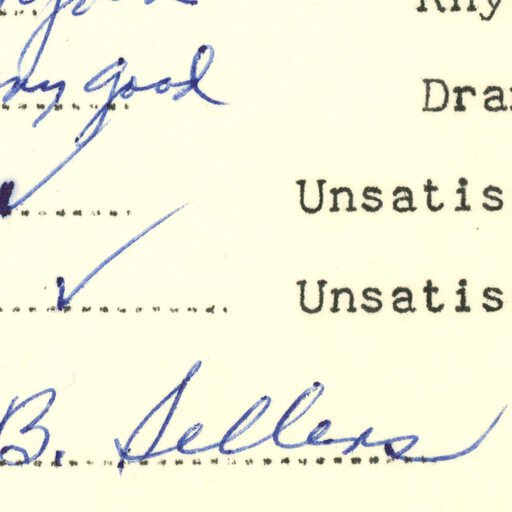 good Rhy
ry good Dra
Unsatis
Unsatis
B. Sellers